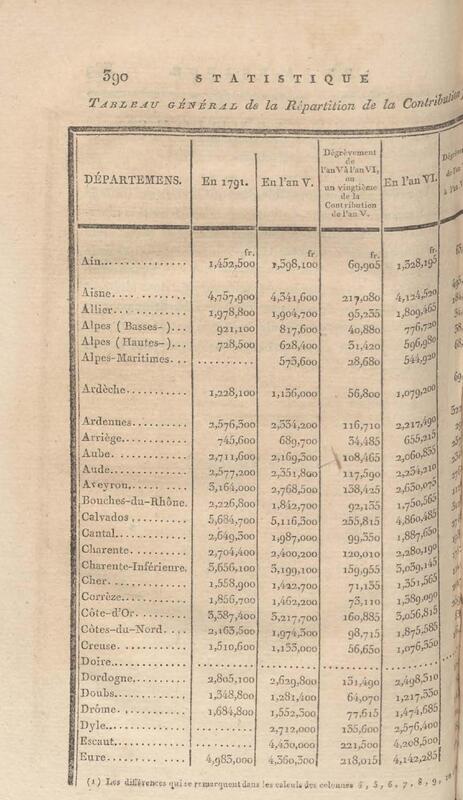 390 STATISTIQUE
TABLEAU GÉNÉRAL de la Répartition de la Contribution
DÉPARTEMENS. En 1791. En l'an V. Dégrèvement de l'an V à l'an VI, ou un vingtième de la Contribution de l'an V. En l'an VI.
fr. fr. fr. fr.
Ain... 1,452,500 1,398,100 69,905 1,328,195
Aisne... 4,757,900 4,341,600 217,080 4,124,520
Allier... 1,978,800 1,904,700 95,235 1,809,465
Alpes (Basses-)... 921,100 817,600 40,880 776,720
Alpes (Hautes-)... 728,500 628,400 31,420 596,980
Alpes-Maritimes... ......... 573,600 28,680 544,920
Ardèche... 1,228,100 1,136,000 56,800 1,079,200
Ardennes... 2,576,300 2,334,200 116,710 2,217,490
Arriège... 745,600 689,700 34,485 655,215
Aube... 2,711,600 2,169,300 108,465 2,060,835
Aude... 2,577,200 2,351,800 117,590 2,234,210
Aveyron... 3,164,000 2,768,500 138,425 2,630,075
Bouches-du-Rhône. 2,226,800 1,842,700 92,135 1,750,565
Calvados... 5,684,700 5,116,300 255,815 4,860,485
Cantal... 2,649,300 1,987,000 99,350 1,887,650
Charente... 2,704,400 2,400,200 120,010 2,280,190
Charente-Inférieure. 3,656,100 3,199,100 159,955 3,039,145
Cher... 1,558,900 1,422,700 71,135 1,351,565
Corrèze... 1,856,700 1,462,200 73,110 1,389,090
Côte-d'Or... 3,387,400 3,217,700 160,885 3,056,815
Côtes-du-Nord... 2,163,500 1,974,300 98,715 1,875,585
Creuse... 1,510,600 1,133,000 56,650 1,076,350
Doire... ......... ......... ......... .........
Dordogne... 2,805,100 2,629,800 131,490 2,498,310
Doubs... 1,348,800 1,281,400 64,070 1,217,330
Drôme... 1,684,800 1,552,300 77,615 1,474,685
Dyle... ......... 2,712,000 135,600 2,576,400
Escaut... ......... 4,430,000 221,500 4,208,500
Eure... 4,983,000 4,360,300 218,015 4,142,285
(1) Les différences qui se remarquent dans les calculs des colonnes 4, 5, 6, 7, 8, 9,